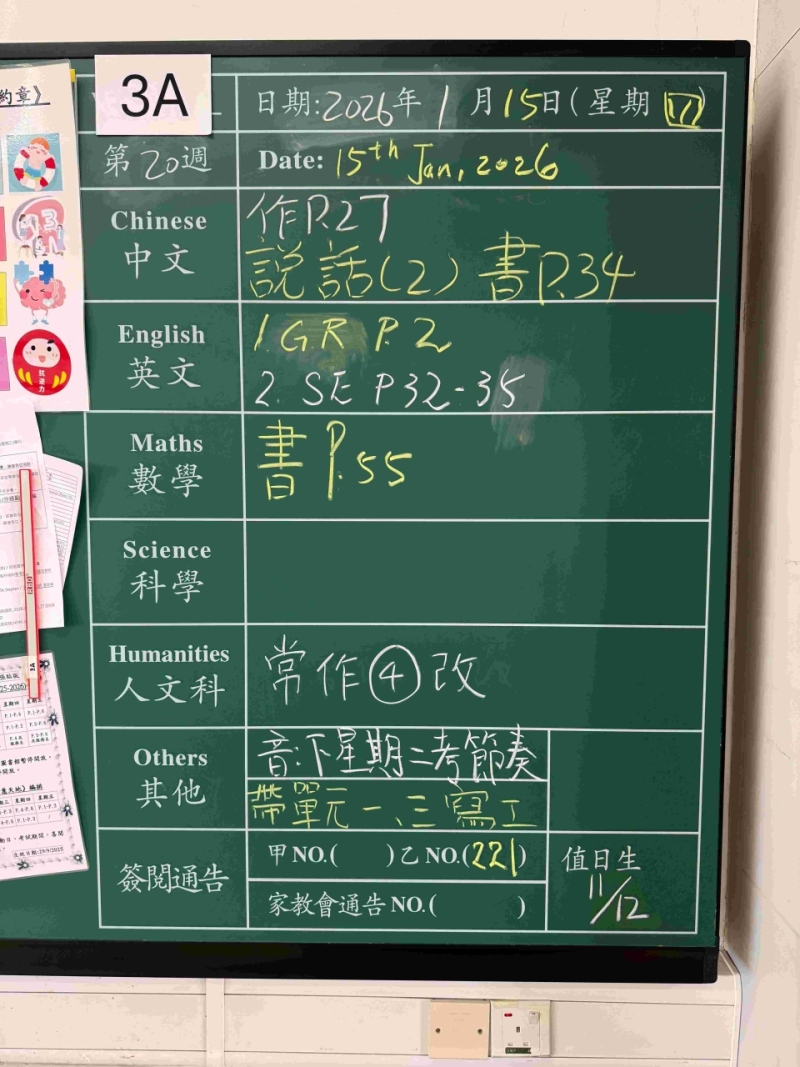 約章》
3A
日期:2026年 1 月 15日(星期 四)
第 20 週
Date: 15th Jan, 2026
Chinese
中文
作P.27
説話(2) 書P.34
English
英文
1. GR P.2
2. SE P32-35
Maths
數學
書 P.55
Science
科學
Humanities
人文科
常作④改
Others
其他
音:下星期二考節奏
帶單元一、三寫工
簽閱通告
甲 NO.( ) 乙 NO.(221)
家教會通告 NO.( )
值日生
11/12
抗逆力